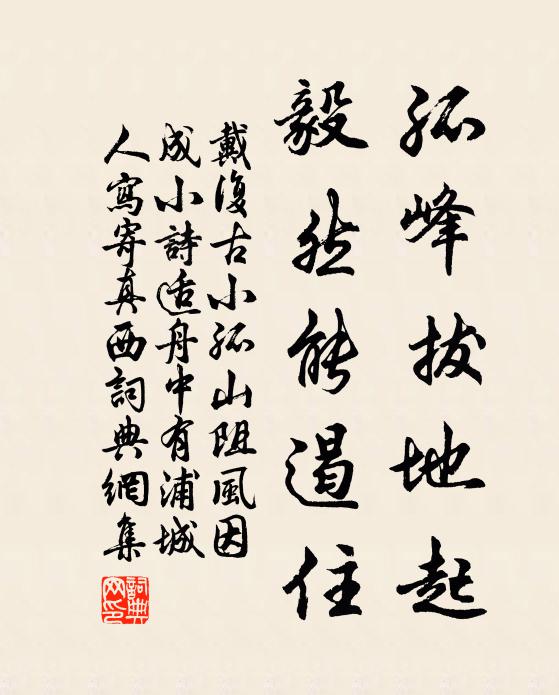 孤峰拔地起
毅然能遏住
戴復古小孤山阻風因
成小詩适舟中有浦城
人寫寄真西詞典網集
詞典網印